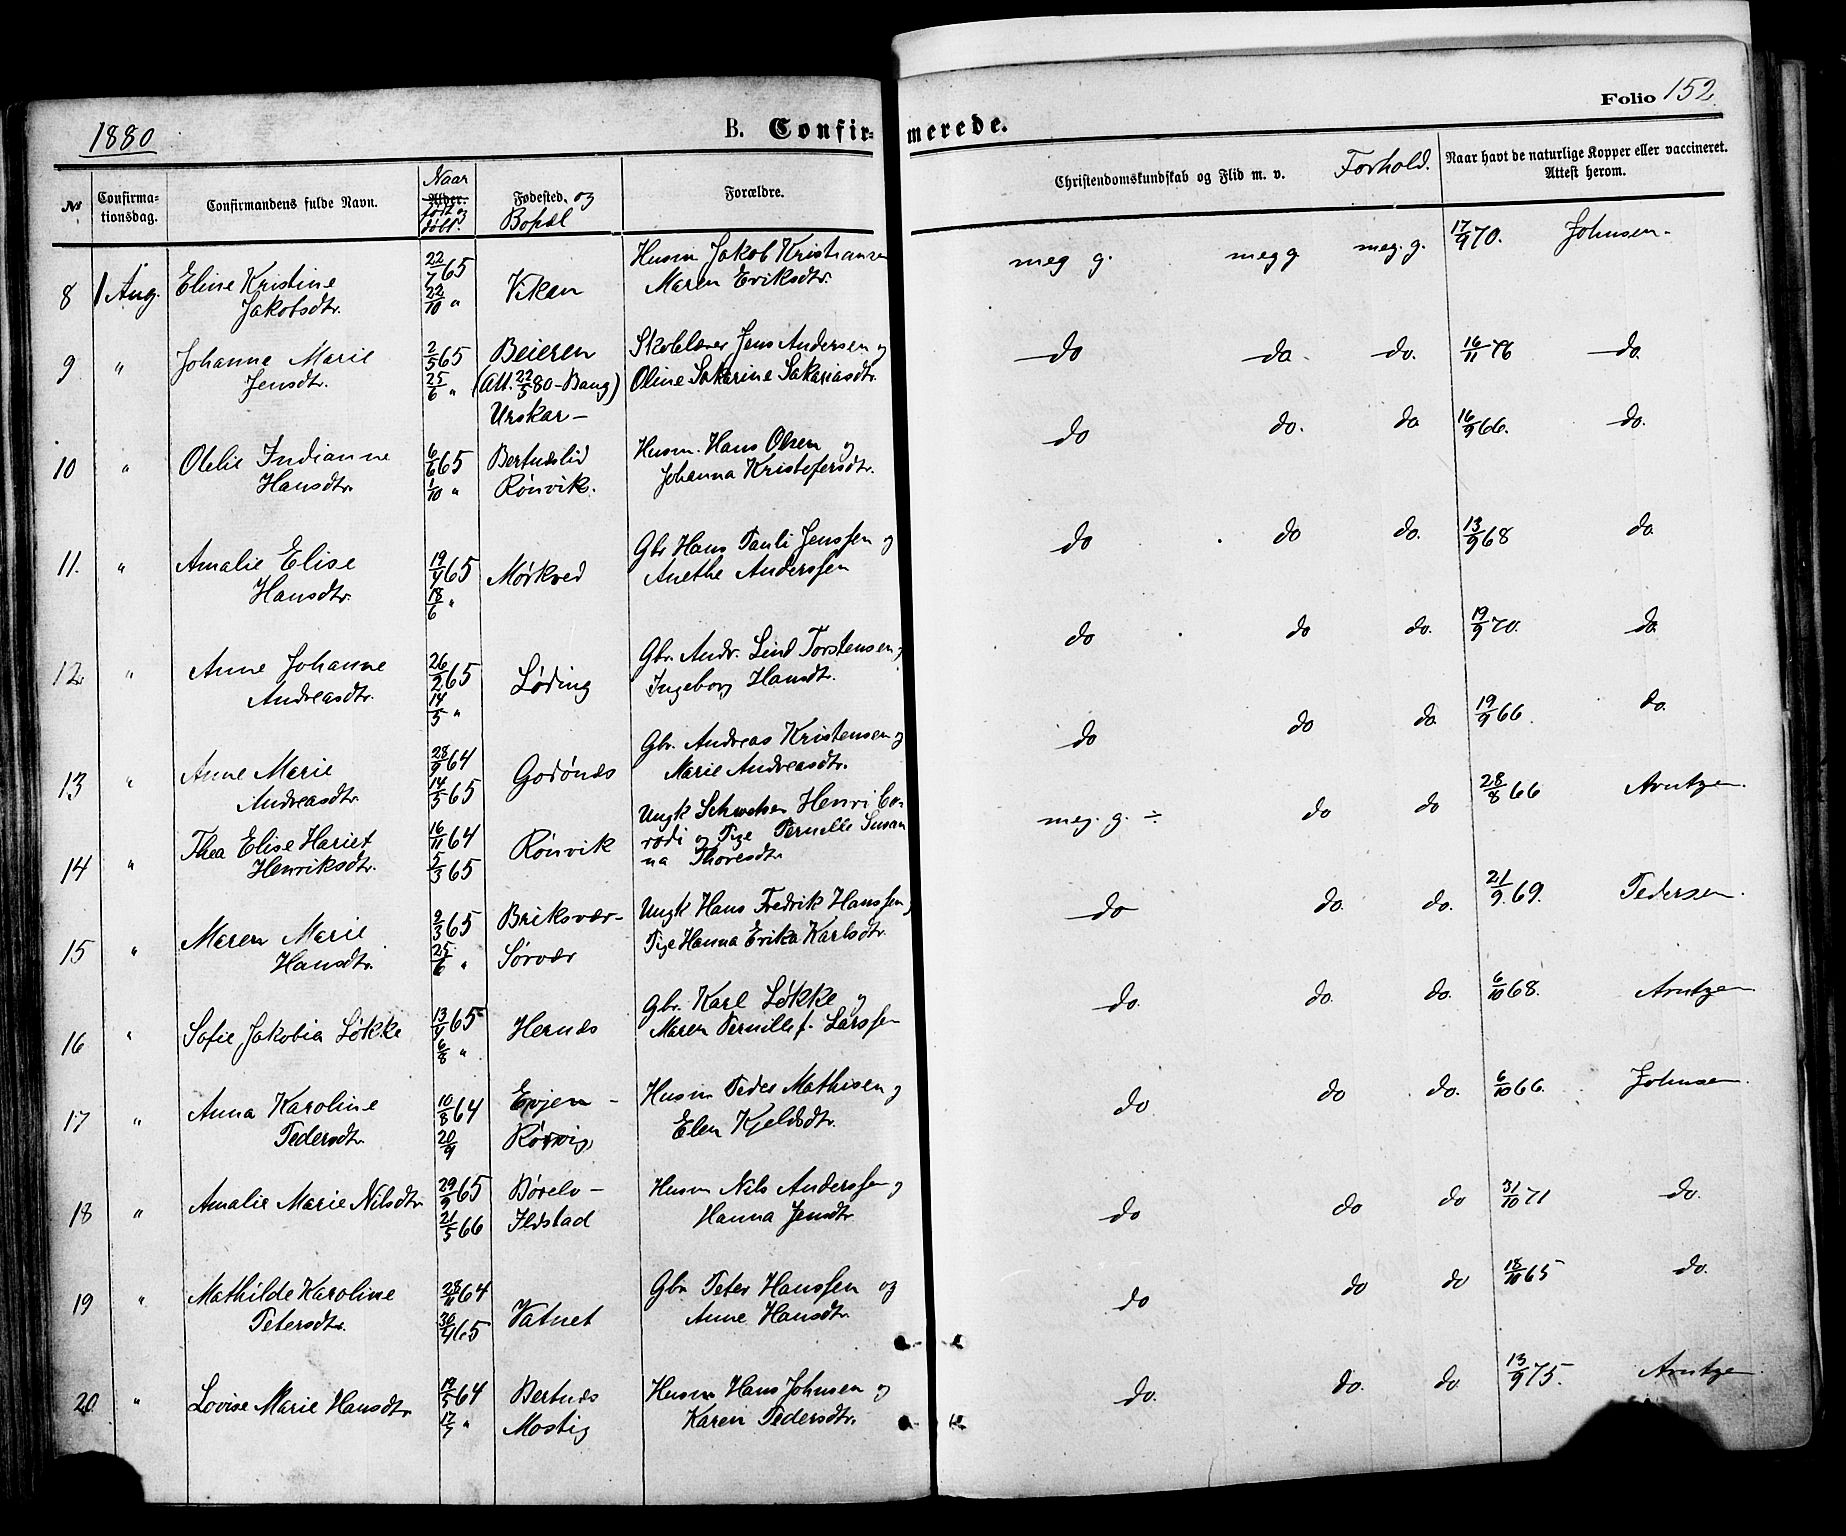 1880
B. Confirmerede.
Folio 152.
№ Confirmationsdag. Confirmandens fulde Navn. Naar Alder. født og døbt. Fødested, og Bopæl Forældre. Christendomskundskab og Flid m. v. Forhold. Naar havt de naturlige Kopper eller vaccineret. Attest herom.
8 1 Aug. Eline Kristine 22/7 65 Vikan Husm Jakob Kristiansen meg g. meg g meg. g. 17/9 70. Johnsen.
Jakobsdtr. 22/10 " Maren Eriksdtr.
9 " Johanna Marie 2/5 65 Beieren Skolelærer Jens Andersen og do do. do. 16/11 76 do.
Jensdtr. 25/6 " (Att. 22/5 80 - Bang) Oline Sakarine Sakariasdtr.
Urskar -
10 " Olelie Indianne 6/6 65 Bertneslid Husm. Hans Olsen og do do. do 16/9 66. do.
Hansdtr. 1/10 " Rönvik. Johanna Kristofersdtr.
11. " Amalie Elise 19/4 65 Mørkved Gbr Hans Pauli Jenssen og do do do. 13/9 68 do.
Hansdtr. 18/6 " Anethe Anderssen
12. " Anne Johanne 26/2 65 Løding Gbr. Andr. Lind Torstensen, do do do. 19/9 70. do.
Andreasdtr. 14/5 " Ingeborg Hansdtr.
13 " Anne Marie 28/9 64 Godönes Gbr. Andreas Kristensen og do do do. 19/9 66. do.
Andreasdtr. 14/5 65 Marie Andreasdtr.
14 " Thea Elise Hariet 16/11 64 Rönvik Ungk Henri Co- meg. g. ÷ do do 28/8 66 Arntzen.
Henriksdtr. 5/3 65 rodi og Pige Pernelle Susan
na Thoresdtr
15 " Maren Marie 2/3 65 Briksvær- Ungk Hans Fredrik Hanssen, do do. do. 21/9 69. Pedersen.
Hansdtr. 25/6 " Sörvær Pige Hanna Erika Karlsdtr.
16 " Sofie Jakobia Løkke 13/4 65 Hernes Gbr. Karl Løkke og do. do. do. 6/10 68. Arntzen
6/8 " Maren Pernille f. Larssen
17 " Anna Karoline 10/8 64 Evjen - Husm Peder Mathisen og do. do do. 6/10 66. Johnsen.
Pedersdtr. 20/9 Rörvig, Elen Kjeldsdtr.
18 " Amalie Marie Nilsdtr 29/9 65 Börelv - Husm Nils Anderssen og do do do 31/10 71 do.
21/5 66 Ilstad Hanna Jensdtr
19 " Mathilde Karoline 28/11 64 Vatnet Gbr Peter Hanssen og do do do 18/11 65 do.
Petersdtr. 30/4 65 Anne Hansdtr.
20 " Lovise Marie Hansdtr. 19/5 64 Bertnes Husm Hans Johnsen og do. do. do. 13/9 75. Arntzen
17/7 " Mostig Karen Pedersdtr.